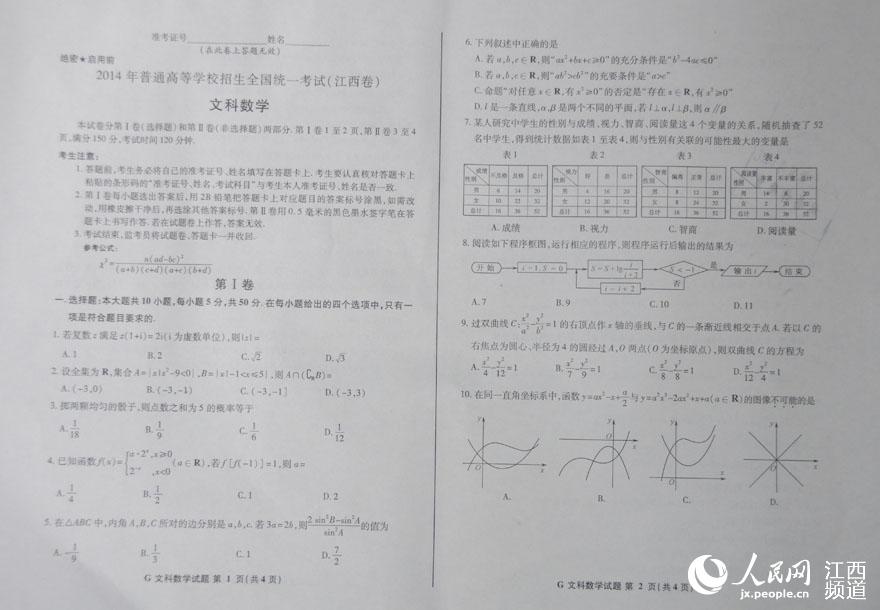 准考证号 姓名
(在此卷上答题无效)
绝密★启用前
2014年普通高等学校招生全国统一考试(江西卷)
文科数学
本试卷分第Ⅰ卷(选择题)和第Ⅱ卷(非选择题)两部分. 第Ⅰ卷1至2页,第Ⅱ卷3至4
页,满分150分,考试时间120分钟.
考生注意:
1. 答题前,考生务必将自己的准考证号、姓名填写在答题卡上. 考生要认真核对答题卡上
粘贴的条形码的“准考证号、姓名、考试科目”与考生本人准考证号、姓名是否一致.
2. 第Ⅰ卷每小题选出答案后,用2B铅笔把答题卡上对应题目的答案标号涂黑,如需改
动,用橡皮擦干净后,再选涂其他答案标号. 第Ⅱ卷用0.5毫米的黑色墨水签字笔在答
题卡上书写作答. 若在试题卷上作答,答案无效.
3. 考试结束,监考员将试题卷、答题卡一并收回.
参考公式:
χ²=n(ad-bc)²/(a+b)(c+d)(a+c)(b+d)
第Ⅰ卷
一. 选择题:本大题共10小题,每小题5分,共50分. 在每小题给出的四个选项中,只有一
项是符合题目要求的.
1. 若复数z满足z(1+i)=2i(i为虚数单位),则|z|=
A. 1 B. 2 C. √2 D. √3
2. 设全集为R,集合A={x|x²-9<0},B={x|-1<x≤5},则A∩(∁RB)=
A. (-3,0) B. (-3,-1) C. (-3,-1] D. (-3,3)
3. 掷两颗均匀的骰子,则点数之和为5的概率等于
A. 1/18 B. 1/9 C. 1/6 D. 1/12
4. 已知函数f(x)={a·2ˣ,x≥0
2⁻ˣ,x<0 (a∈R),若f[f(-1)]=1,则a=
A. 1/4 B. 1/2 C. 1 D. 2
5. 在△ABC中,内角A,B,C所对的边分别是a,b,c. 若3a=2b,则2sin²B-sin²A/sin²A的值为
A. -1/9 B. 1/3 C. 1 D. 7/2
G 文科数学试题 第 1 页(共4页)
6. 下列叙述中正确的是
A. 若a,b,c∈R,则“ax²+bx+c≥0”的充分条件是“b²-4ac≤0”
B. 若a,b,c∈R,则“ab²>cb²”的充要条件是“a>c”
C. 命题“对任意x∈R,有x²≥0”的否定是“存在x∈R,有x²≥0”
D. l是一条直线,α,β是两个不同的平面,若l⊥α,l⊥β,则α∥β
7. 某人研究中学生的性别与成绩、视力、智商、阅读量这4个变量的关系,随机抽查了52
名中学生,得到统计数据如表1至表4,则与性别有关联的可能性最大的变量是
表1 表2 表3 表4
成绩 性别 不及格 及格 总计
男 6 14 20
女 10 22 32
总计 16 36 52
视力 性别 好 差 总计
男 4 16 20
女 12 20 32
总计 16 36 52
智商 性别 偏高 正常 总计
男 8 12 20
女 8 24 32
总计 16 36 52
阅读量 性别 丰富 不丰富 总计
男 14 6 20
女 2 30 32
总计 16 36 52
A. 成绩 B. 视力 C. 智商 D. 阅读量
8. 阅读如下程序框图,运行相应的程序,则程序运行后输出的结果为
开始 i=1,S=0 S=S+lg i/i+2 S<-1 是 输出i 结束
否
i=i+2
A. 7 B. 9 C. 10 D. 11
9. 过双曲线C:x²/a²-y²/b²=1的右顶点作x轴的垂线,与C的一条渐近线相交于点A. 若以C的
右焦点为圆心、半径为4的圆经过A,O两点(O为坐标原点),则双曲线C的方程为
A. x²/4-y²/12=1 B. x²/7-y²/9=1 C. x²/8-y²/8=1 D. x²/12-y²/4=1
10. 在同一直角坐标系中,函数y=ax²-x+a/2与y=a²x³-2ax²+x+a(a∈R)的图像不可能的是
y y y y
O x O x O x O x
A. B. C. D.
G 文科数学试题 第 2 页(共4页)
人民网 江西频道
jx.people.cn